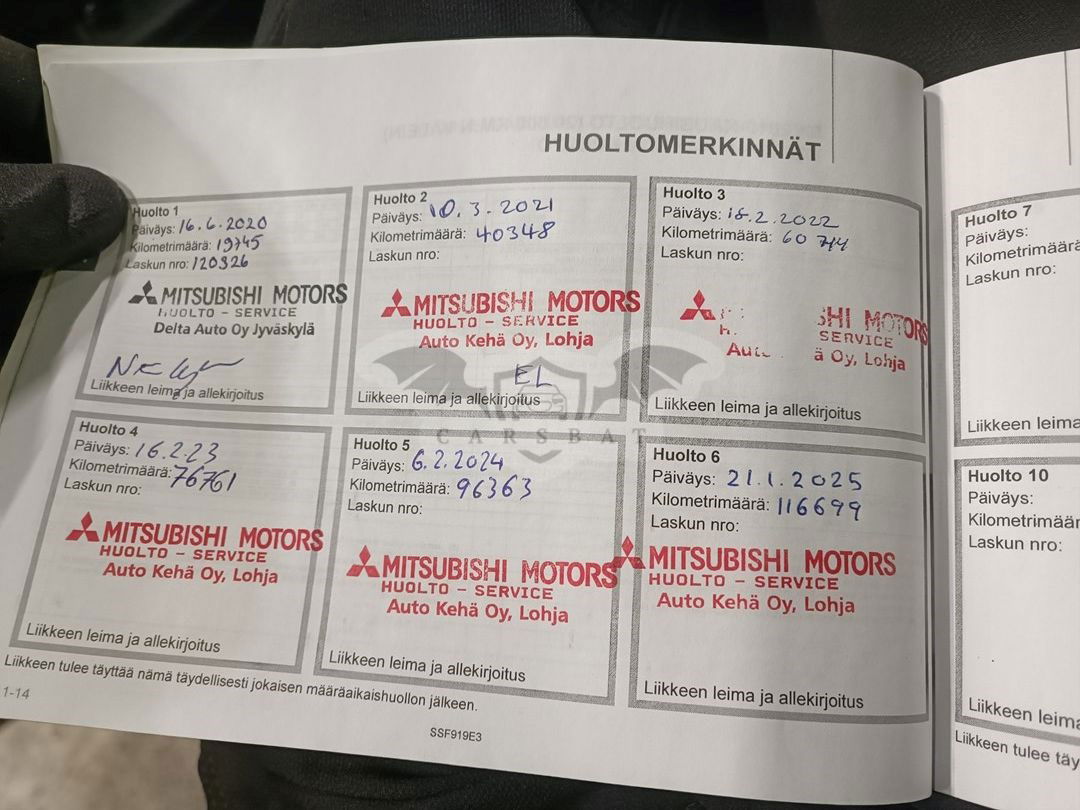 HUOLTOMERKINNÄT
Huolto 1
Päiväys: 16.6.2020
Kilometrimäärä: 19745
Laskun nro: 120326
MITSUBISHI MOTORS
HUOLTO - SERVICE
Delta Auto Oy Jyväskylä
Liikkeen leima ja allekirjoitus
Huolto 2
Päiväys: 10.3.2021
Kilometrimäärä: 40348
Laskun nro:
MITSUBISHI MOTORS
HUOLTO - SERVICE
Auto Kehä Oy, Lohja
EL
Liikkeen leima ja allekirjoitus
Huolto 3
Päiväys: 2.2022
Kilometrimäärä:
Laskun nro:
SHI MOTORS
SERVICE
ä Oy, Lohja
Liikkeen leima ja allekirjoitus
Huolto 4
Päiväys: 16.2.23
Kilometrimäärä: 76761
Laskun nro:
MITSUBISHI MOTORS
HUOLTO - SERVICE
Auto Kehä Oy, Lohja
Liikkeen leima ja allekirjoitus
Huolto 5
Päiväys: 6.2.2024
Kilometrimäärä: 96363
Laskun nro:
MITSUBISHI MOTORS
HUOLTO - SERVICE
Auto Kehä Oy, Lohja
Liikkeen leima ja allekirjoitus
Huolto 6
Päiväys: 21.1.2025
Kilometrimäärä: 116699
Laskun nro:
MITSUBISHI MOTORS
HUOLTO - SERVICE
Auto Kehä Oy, Lohja
Liikkeen leima ja allekirjoitus
Liikkeen tulee täyttää nämä täydellisesti jokaisen määräaikaishuollon jälkeen.
1-14
SSF919E3
CARSBAT
Huolto 7
Päiväys:
Kilometrimäärä
Laskun nro:
Liikkeen leima
Huolto 10
Päiväys:
Kilometrimäär
Laskun nro:
Liikkeen leima
Liikkeen tulee täy